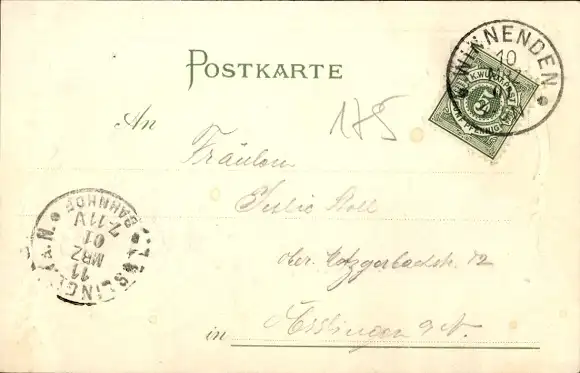 WINNENDEN
10
MRZ
K. WÜRTT. POST
5
FÜNF PFENNIG
POSTKARTE
175
An
Fräulein
Julie Stoll
12
in Esslingen a/N.
ESSLINGEN a. N.
BAHNHOF
11
MRZ
01
7-11V